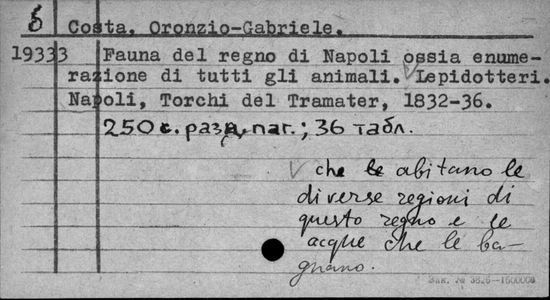 б Costa, Oronzio-Gabriele.
19333 Fauna del regno di Napoli ossia enume-
razione di tutti gli animali. Lepidotteri.
Napoli, Torchi del Tramater, 1832-36.
250 с. разд. паг.; 36 табл.
√ che le abitano le
diverse regioni di
questo regno e le
acque che le ba-
gnano.
Зак. № 3826—1500000